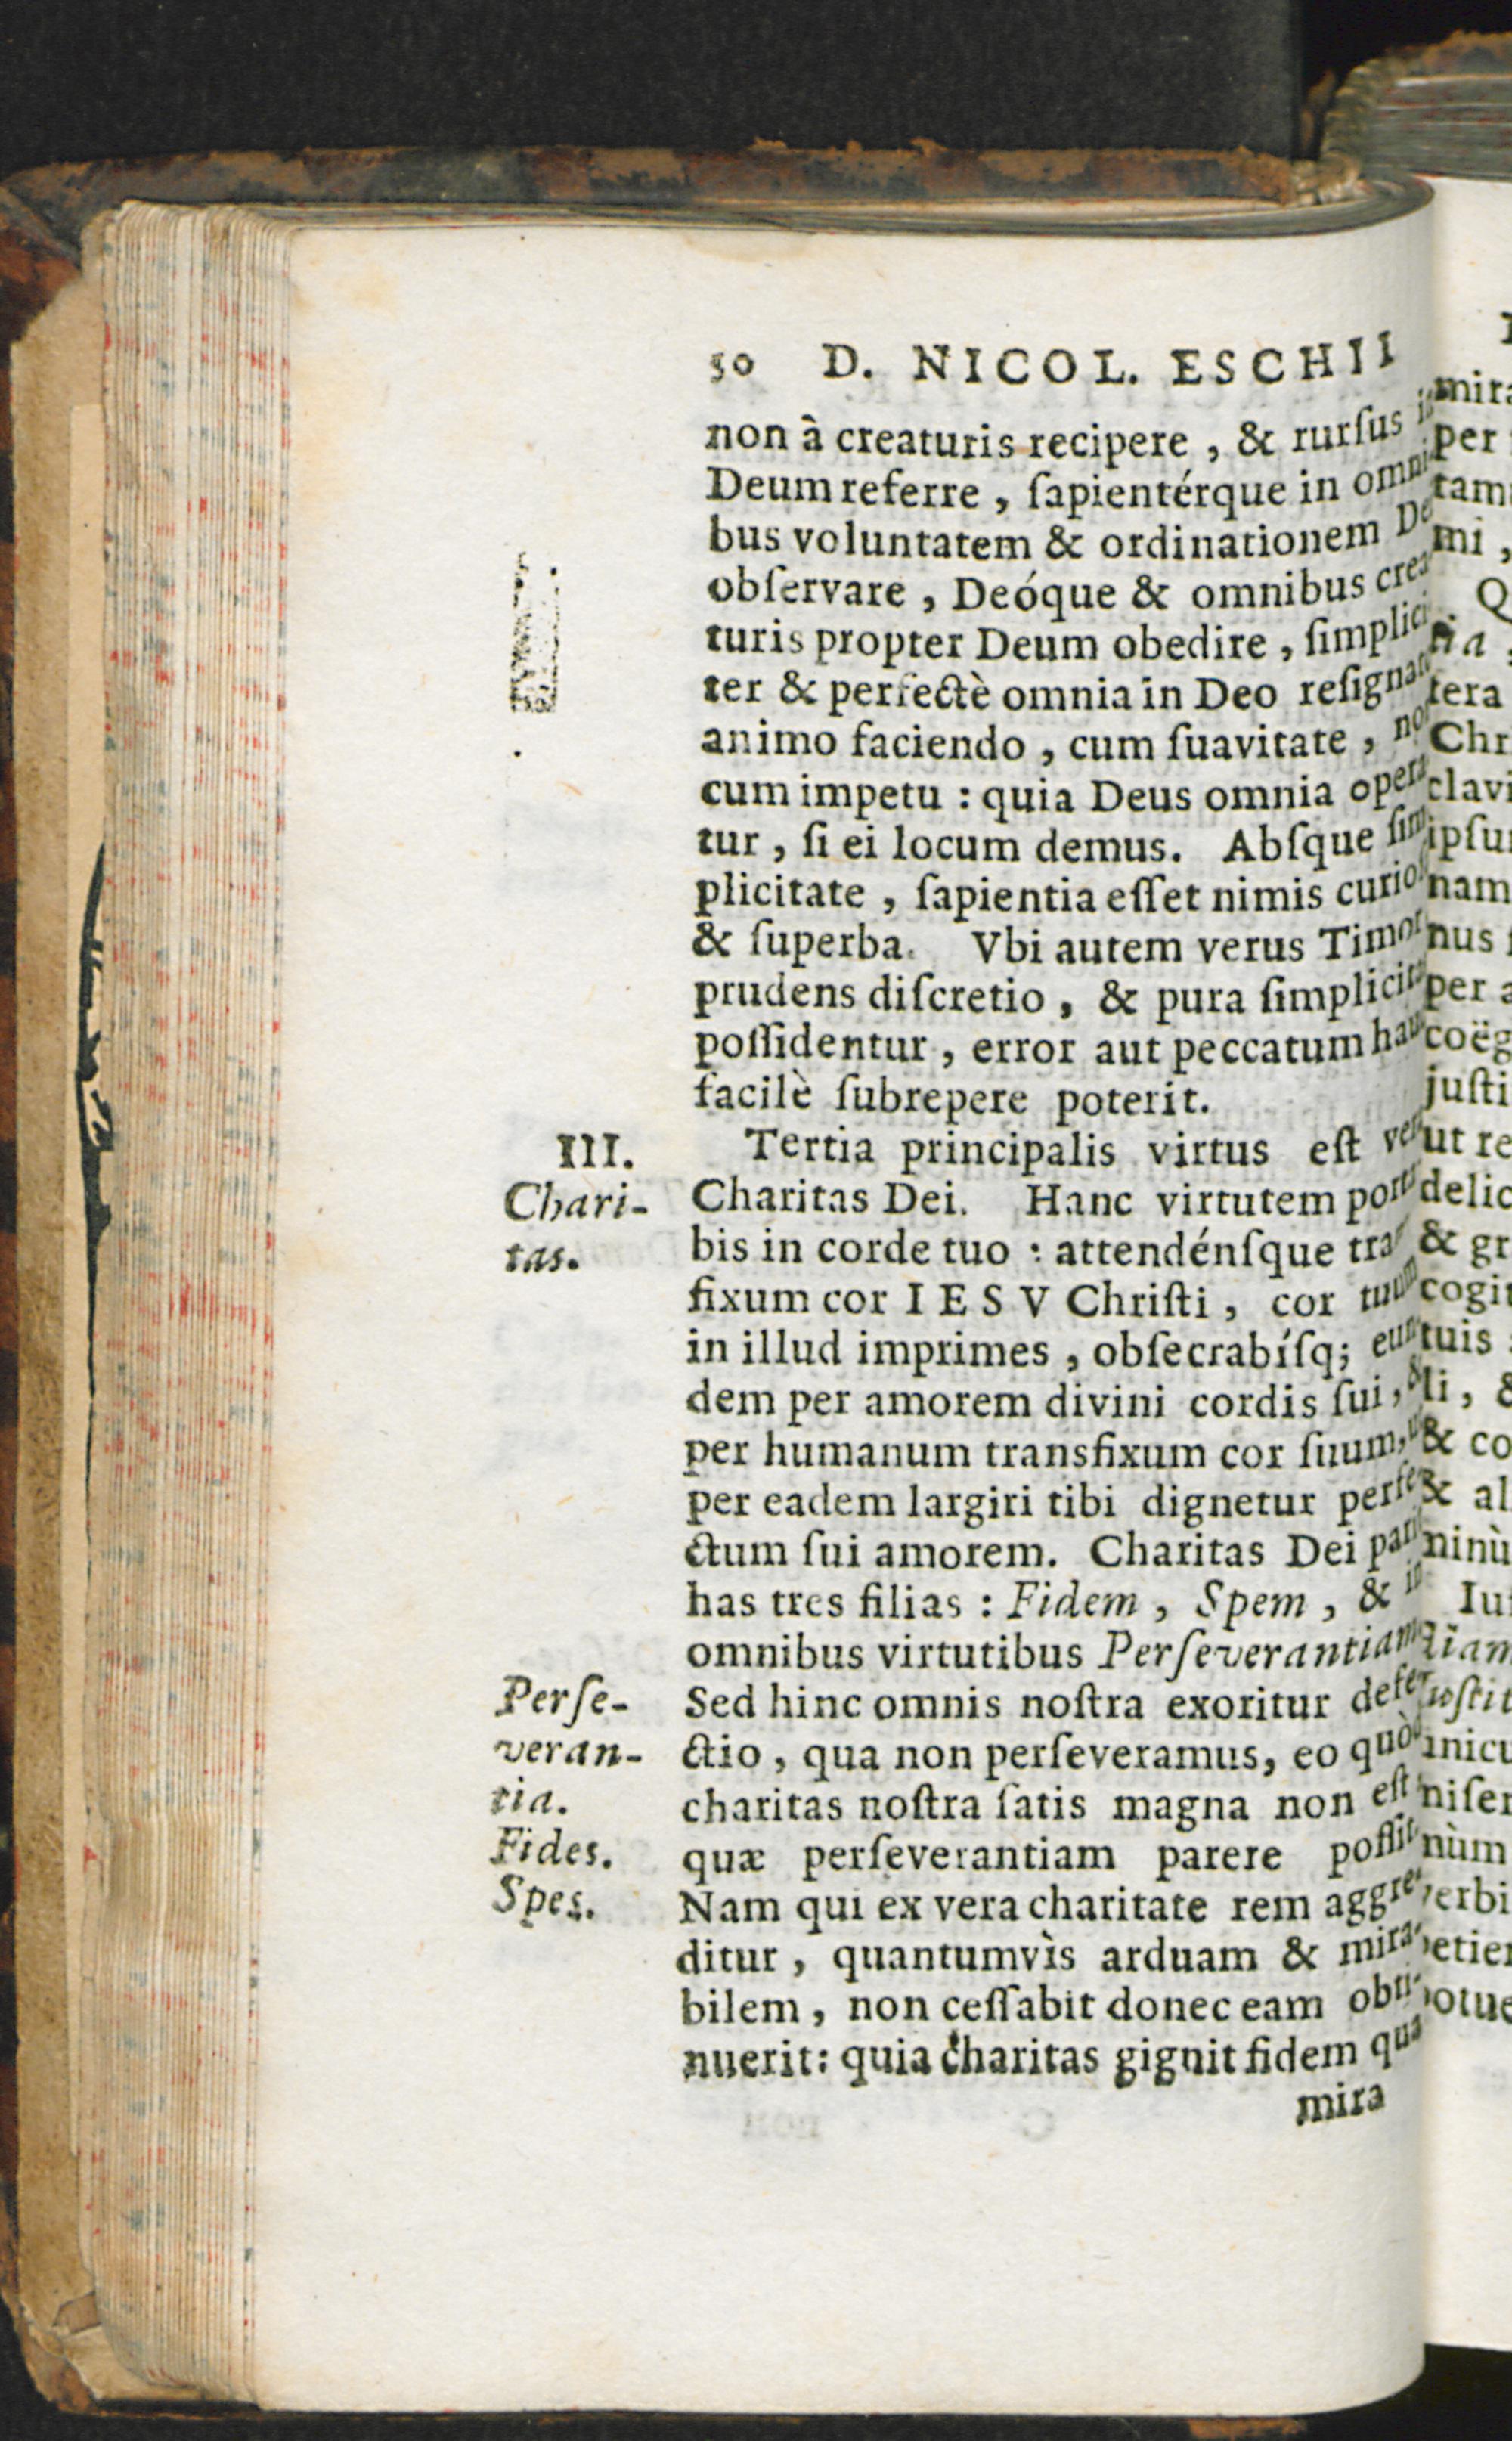 50 D. NICOL. ESCHII
non à creaturis recipere , & rurſus
Deum referre , ſapientérque in omni
bus voluntatem & ordinationem De
obſervare , Deóque & omnibus crea
turis propter Deum obedire , ſimplici
ter & perfectè omnia in Deo reſignato
animo faciendo , cum ſuavitate , non
cum impetu : quia Deus omnia opera
tur , ſi ei locum demus. Abſque ſim
plicitate , ſapientia eſſet nimis curioſ
& ſuperba. Vbi autem verus Timor
prudens diſcretio , & pura ſimplicita
poſſidentur , error aut peccatum hau
facilè ſubrepere poterit.
III.
Chari-
tas.
Tertia principalis virtus eſt
Charitas Dei. Hanc virtutem porta
bis in corde tuo : attendénſque tranſ
fixum cor IESV Chriſti , cor tuum
in illud imprimes , obſecrabíſq; eun
dem per amorem divini cordis ſui, &
per humanum transfixum cor ſuum,
per eadem largiri tibi dignetur perfe
ctum ſui amorem. Charitas Dei parit
has tres filias : Fidem , Spem , & in
omnibus virtutibus Perſeverantiam
Perſe-
veran-
tia.
Fides.
Spes.
Sed hinc omnis noſtra exoritur defe
ctio , qua non perſeveramus, eo quòd
charitas noſtra ſatis magna non eſt
quæ perſeverantiam parere poſſit
Nam qui ex vera charitate rem aggre-
ditur , quantumvìs arduam & mira-
bilem , non ceſſabit donec eam obti-
nuerit: quia charitas gignit fidem qua
mira
per
mi ,
Q
tera
Chr
clavi
nam
nus
per
coëg
juſti
ut re
delic
& gr
cogit
tuis
li ,
& co
& al